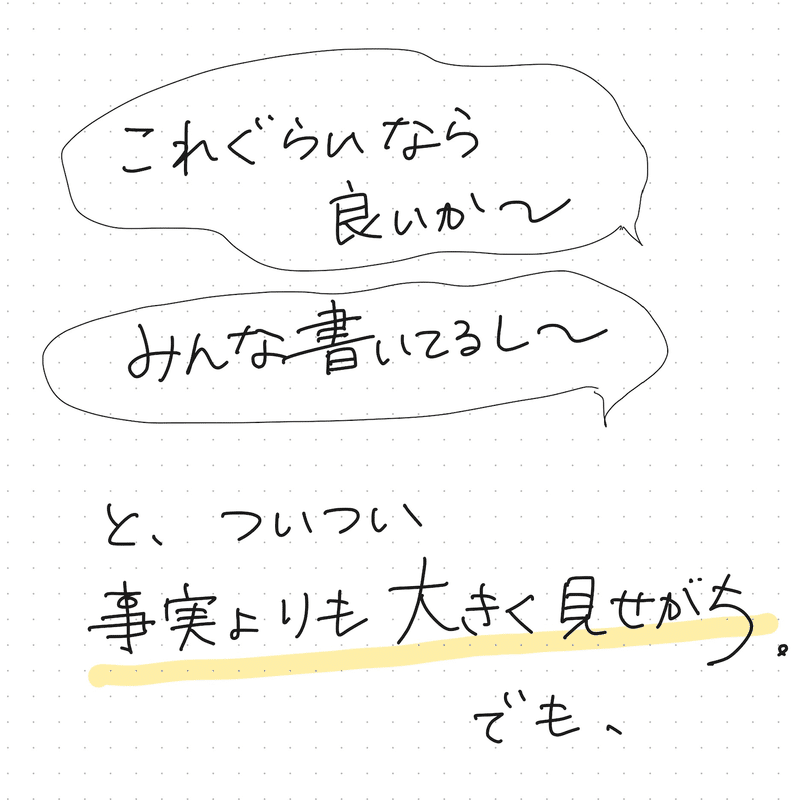 これぐらいなら
良いか〜
みんな書いてるし〜
と、ついつい
事実よりも大きく見せがち。
でも、